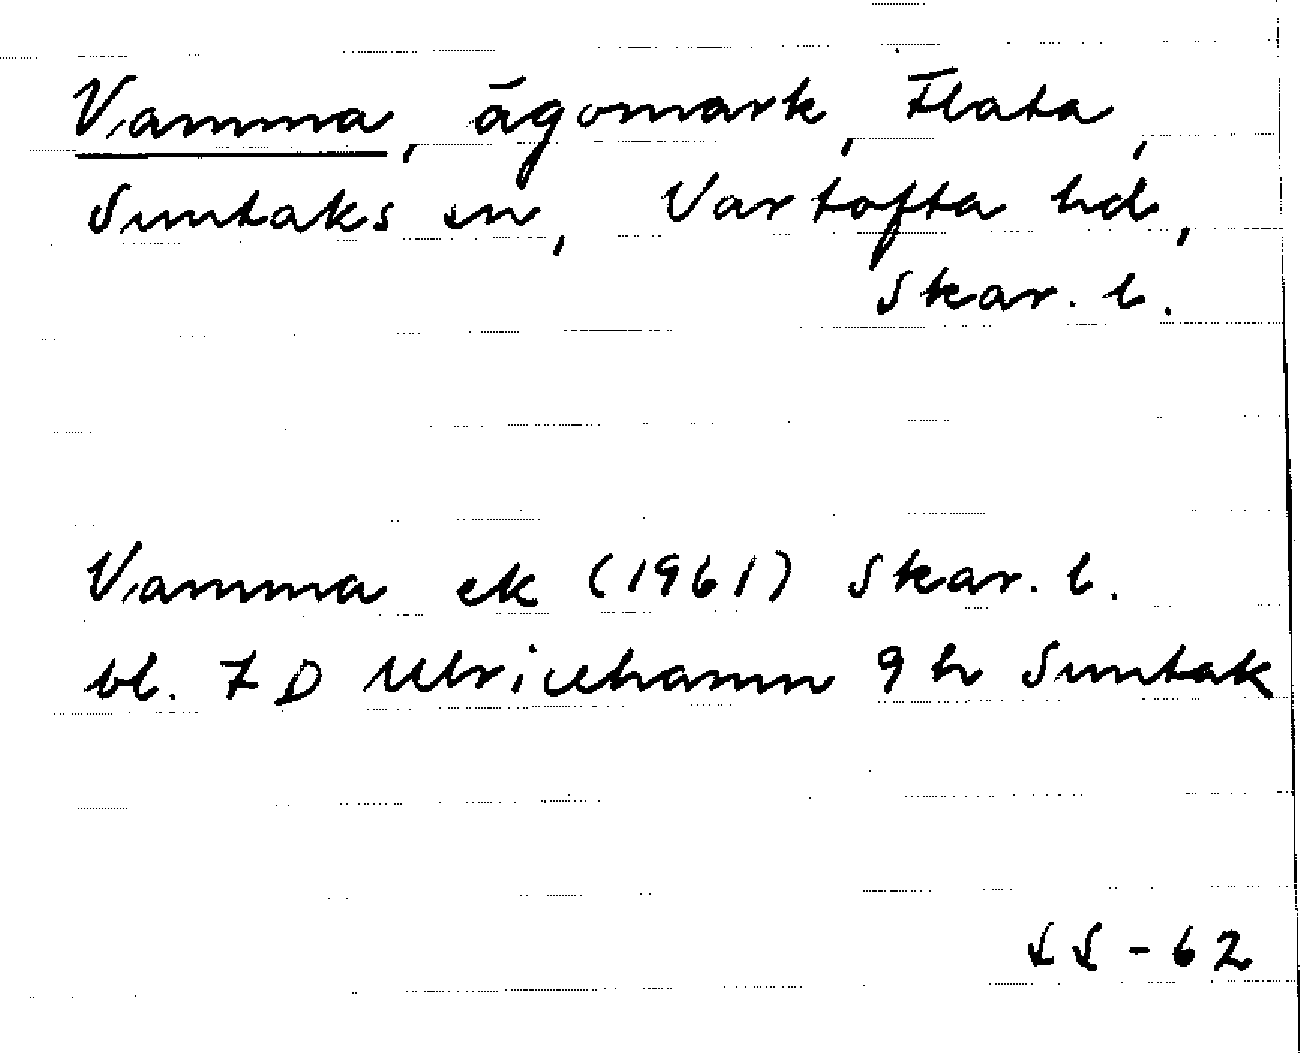 Vamma, ägomark, Flata,
Suntaks sn, Vartofta hd,
Skar. l.
Vamma ek (1961) Skar. l.
bl. 7 D Ulricehamn 9 h Suntak
SS - 62